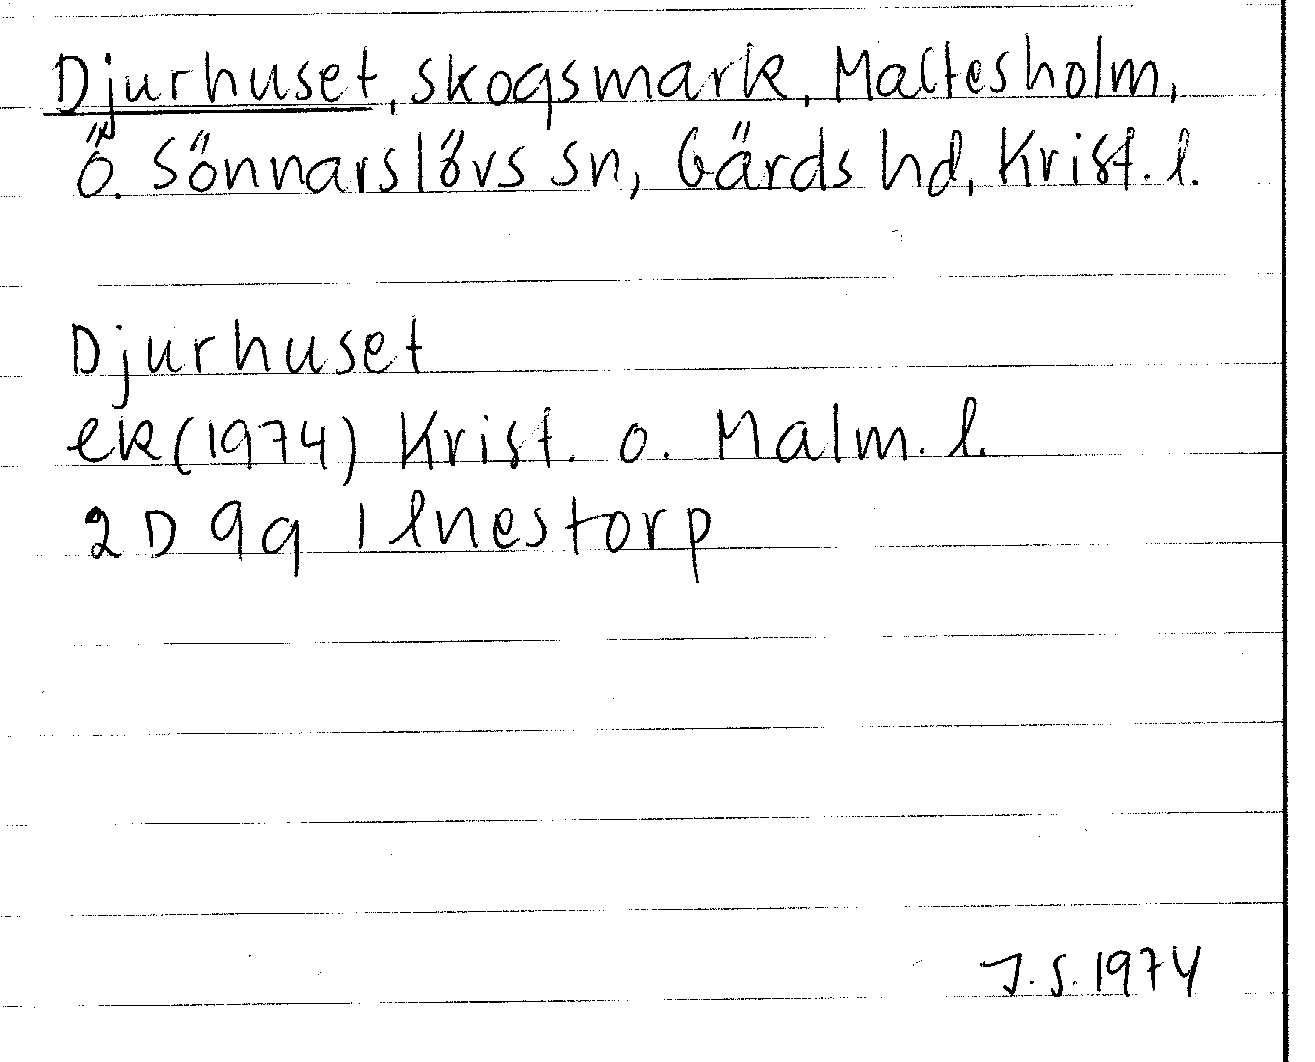 Djurhuset, skogsmark, Maltesholm,
Ö. Sönnarslövs sn, Gärds hd, Krist. l.
Djurhuset
ek (1974) Krist. o. Malm. l.
2D 9q Ilnestorp
J.S. 1974